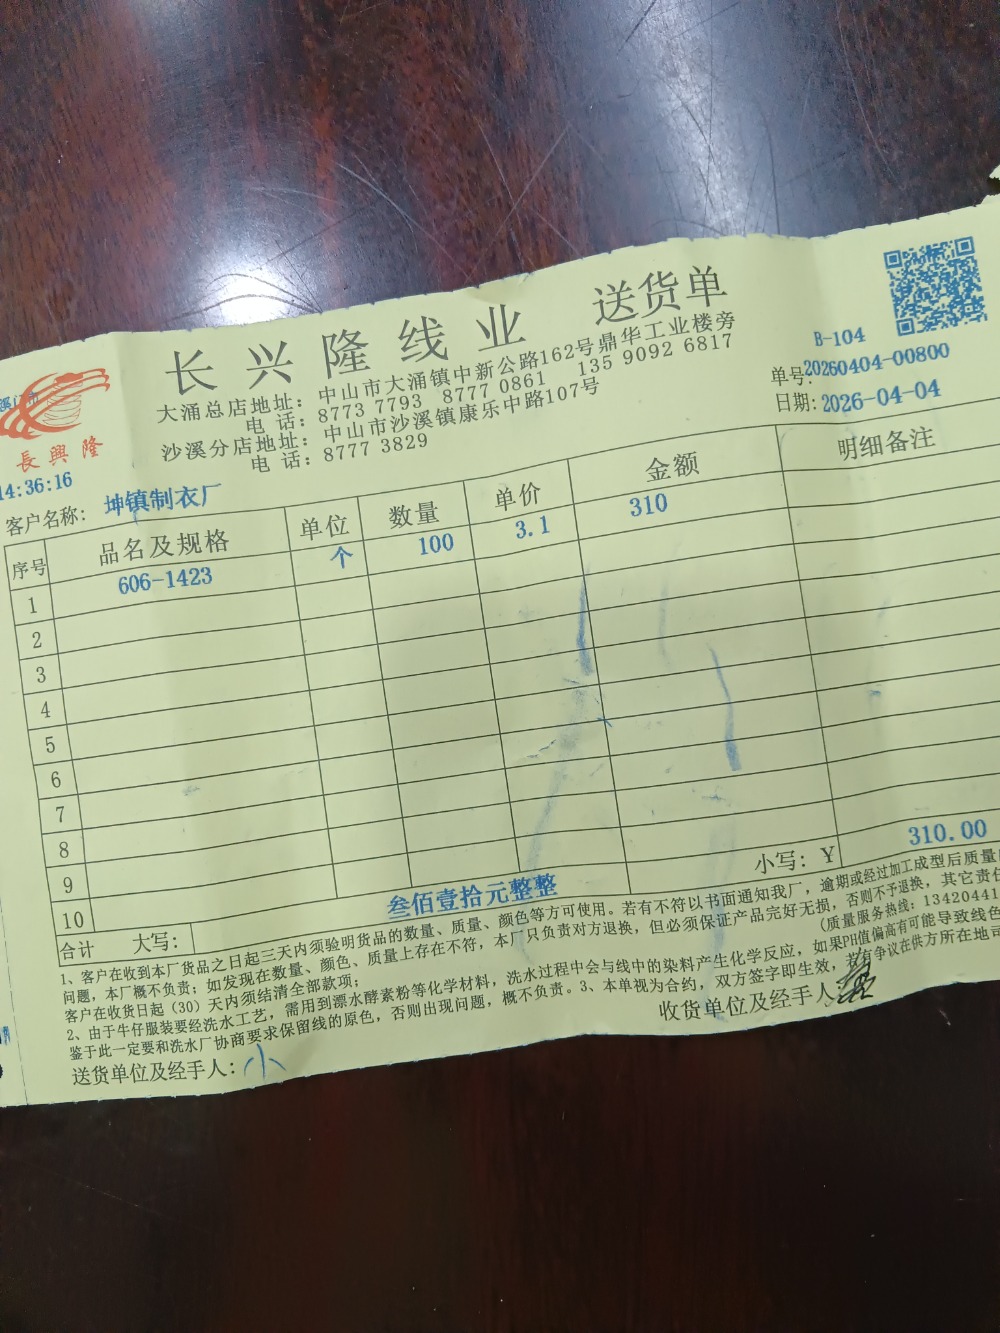 长兴隆线业 送货单
大涌总店地址：中山市大涌镇中新公路162号鼎华工业楼旁
电 话：8773 7793 8777 0861 135 9092 6817
沙溪分店地址：中山市沙溪镇康乐中路107号
电 话：8777 3829
B-104
单号：20260404-00800
日期：2026-04-04
長興隆
14:36:16
客户名称：坤镇制衣厂
序号 品名及规格 单位 数量 单价 金额 明细备注
1 606-1423 个 100 3.1 310
2
3
4
5
6
7
8
9
10
合计 大写：叁佰壹拾元整整 小写：¥ 310.00
1、客户在收到本厂货品之日起三天内须验明货品的数量、质量、颜色等方可使用。若有不符以书面通知我厂，逾期或经过加工成型后质量
问题，本厂概不负责；如发现在数量、颜色、质量上存在不符，本厂只负责对方退换，但必须保证产品完好无损，否则不予退换，其它责任
客户在收货日起（30）天内须结清全部款项；（质量服务热线：13420441
2、由于牛仔服装要经洗水工艺，需用到漂水酵素粉等化学材料，洗水过程中会与线中的染料产生化学反应，如果PH值偏高有可能导致线色
鉴于此一定要和洗水厂协商要求保留线的原色，否则出现问题，概不负责。3、本单视为合约，双方签字即生效，若有争议在供方所在地司
送货单位及经手人：小 收货单位及经手人